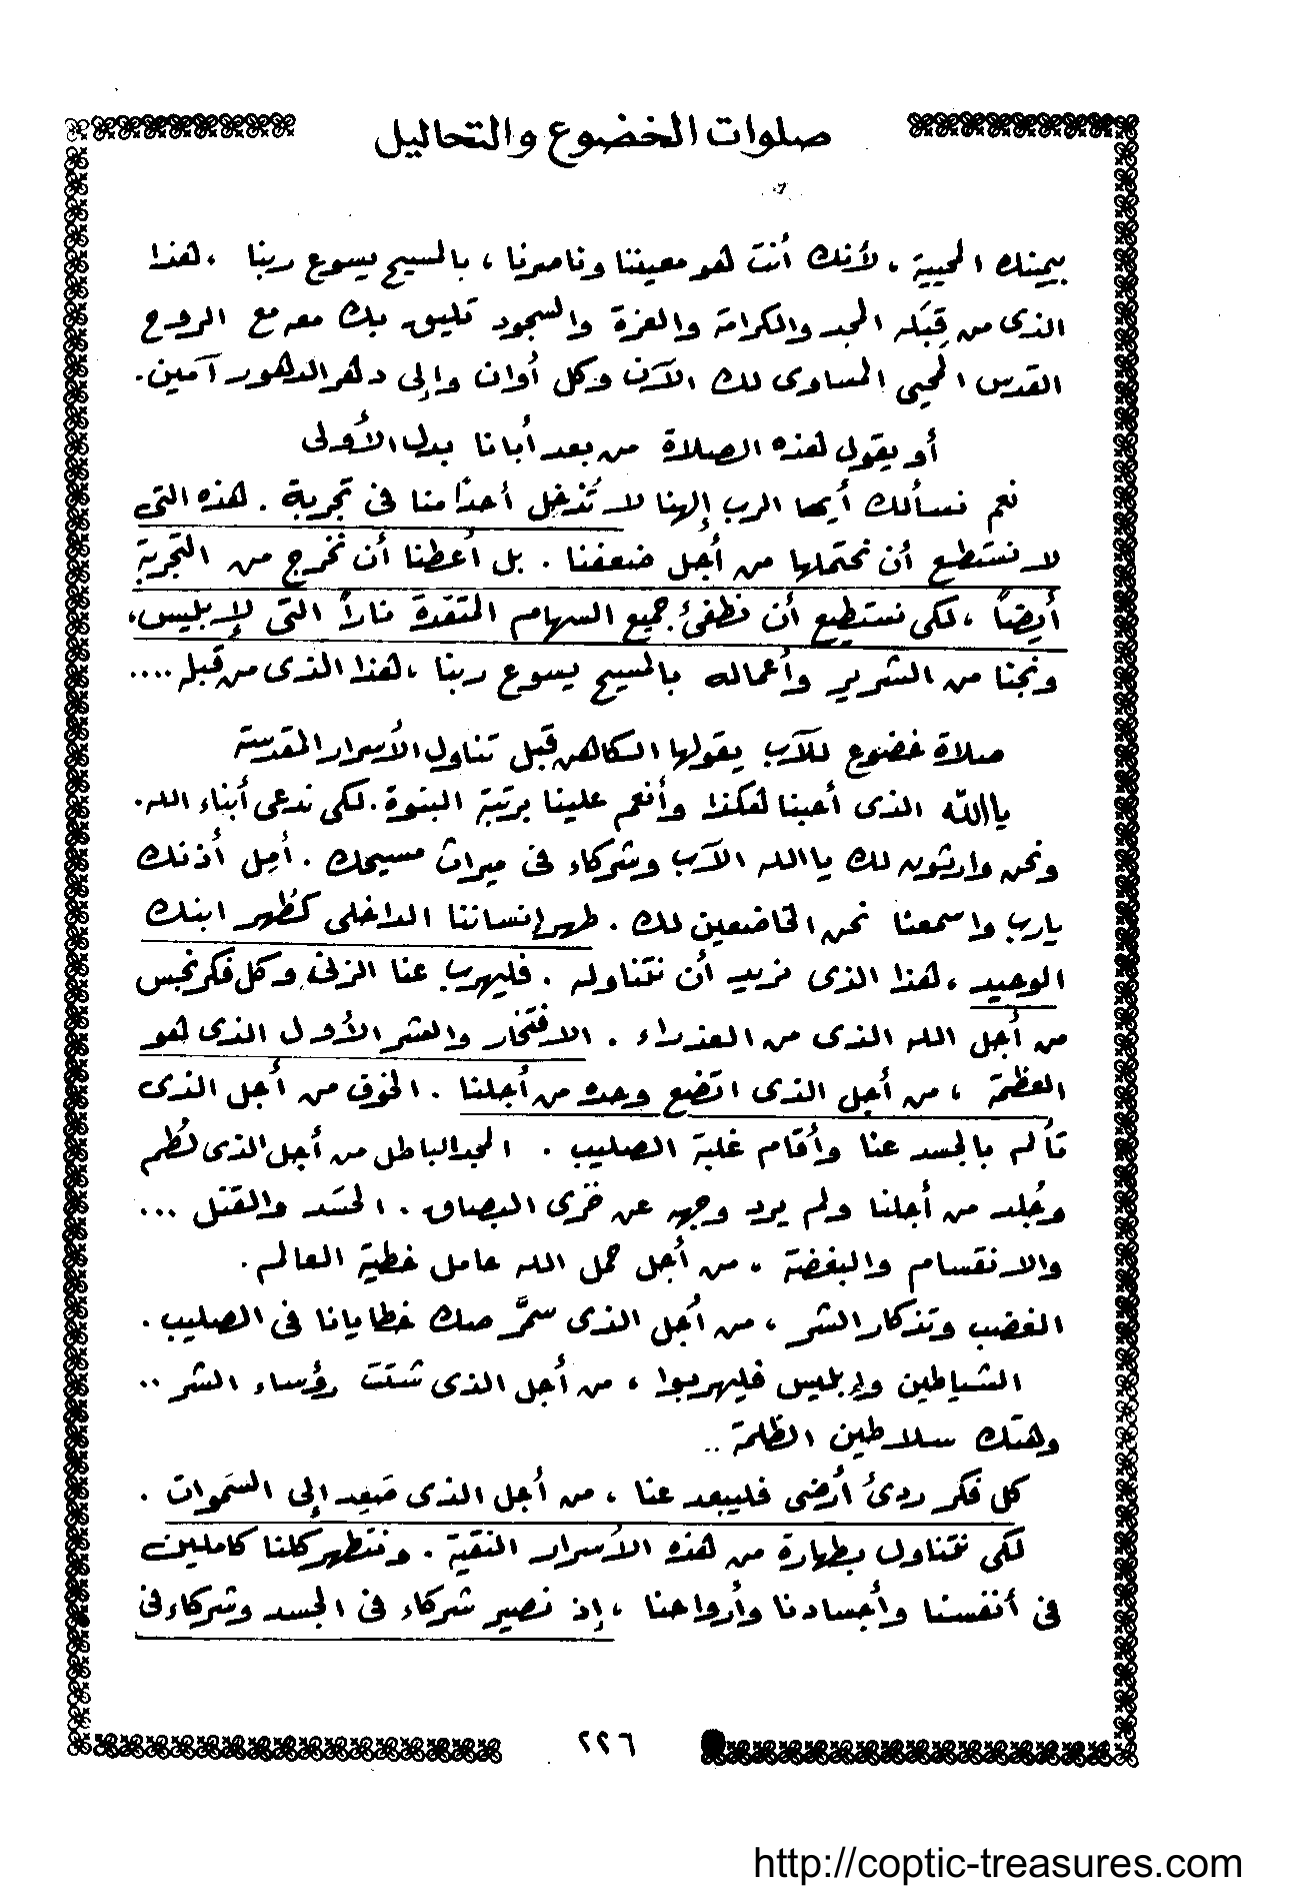 صلوات الخضوع والتحاليل
بيمينك المحيية ، لأنك أنت هو معيننا وناصرنا ، بالمسيح يسوع ربنا ، هذا
الذى من قِبَله المجد والكرامة والعزة والسجود تليق بك معه مع الروح
القدس المحيى المساوى لك الآن وكل أوان وإلى دهر الدهور آمين .
أو يقول هذه الصلاة من بعد أبانا بدل الأولى
نعم نسألك أيها الرب إلهنا لا تُدخل أحدًا منا فى تجربة . هذه التى
لا نستطيع أن نحتملها من أجل ضعفنا . بل أعطنا أن نخرج من التجربة
أيضاً ، لكى نستطيع أن نطفئ جميع السهام المتقدة ناراً التى لإبليس ،
ونجنا من الشرير وأعماله بالمسيح يسوع ربنا ، هذا الذى من قبله ....
صلاة خضوع للآب يقولها الكاهن قبل تناول الأسرار المقدسة
يا الله الذى أحبنا هكذا وأنعم علينا برتبة البنوة . لكى ندعى أبناء الله .
ونحن وارثون لك يا الله الآب وشركاء فى ميراث مسيحك . أمِل أذنك
يارب واسمعنا نحن الخاضعين لك . طهر إنساننا الداخلى كطُهر ابنك
الوحيد ، هذا الذى نريد أن نتناوله . فليهرب عنا الزنى وكل فكر نجس
من أجل الله الذى من العذراء . الافتخار والشر الأول الذى هو
العظمة ، من أجل الذى اتضع وحده من أجلنا . الخوف من أجل الذى
تألم بالجسد عنا وأقام غلبة الصليب . المجد الباطل من أجل الذى لُطم
وجُلد من أجلنا ولم يرد وجهه عن خزى البصاق . الحَسَد والقتل ...
والانقسام والبغضة ، من أجل حمل الله حامل خطية العالم .
الغضب وتذكار الشر ، من أجل الذى سمَّر صك خطايانا فى الصليب .
الشياطين وإبليس فليهربوا ، من أجل الذى شتت رؤساء الشر ..
وهتك سلاطين الظلمة ..
كل فكر ردئ أرضى فليبعد عنا ، من أجل الذى صَعِد إلى السَموات .
لكى نتناول بطهارة من هذه الأسرار النقية . ونتطهر كلنا كاملين
فى أنفسنا وأجسادنا وأرواحنا ، إذ نصير شركاء فى الجسد وشركاء فى
٢٢٦
http://coptic-treasures.com